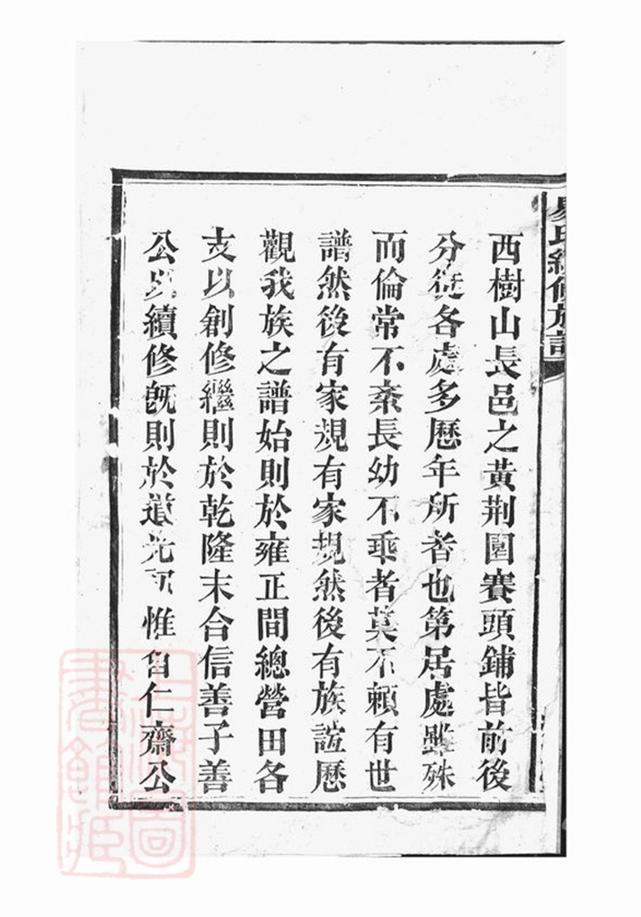 易氏續修族譜
西樹山長邑之黃荆圍賽頭鋪皆前後
分徙各處多歷年所者也第居處雖殊
而倫常不紊長幼不乖者莫不賴有世
譜然後有家規有家規然後有族誼歷
觀我族之譜始則於雍正間總營田各
支以創修繼則於乾隆末合信善子善
公以續修旣則於道光初惟自仁齋公
上海圖
書館藏